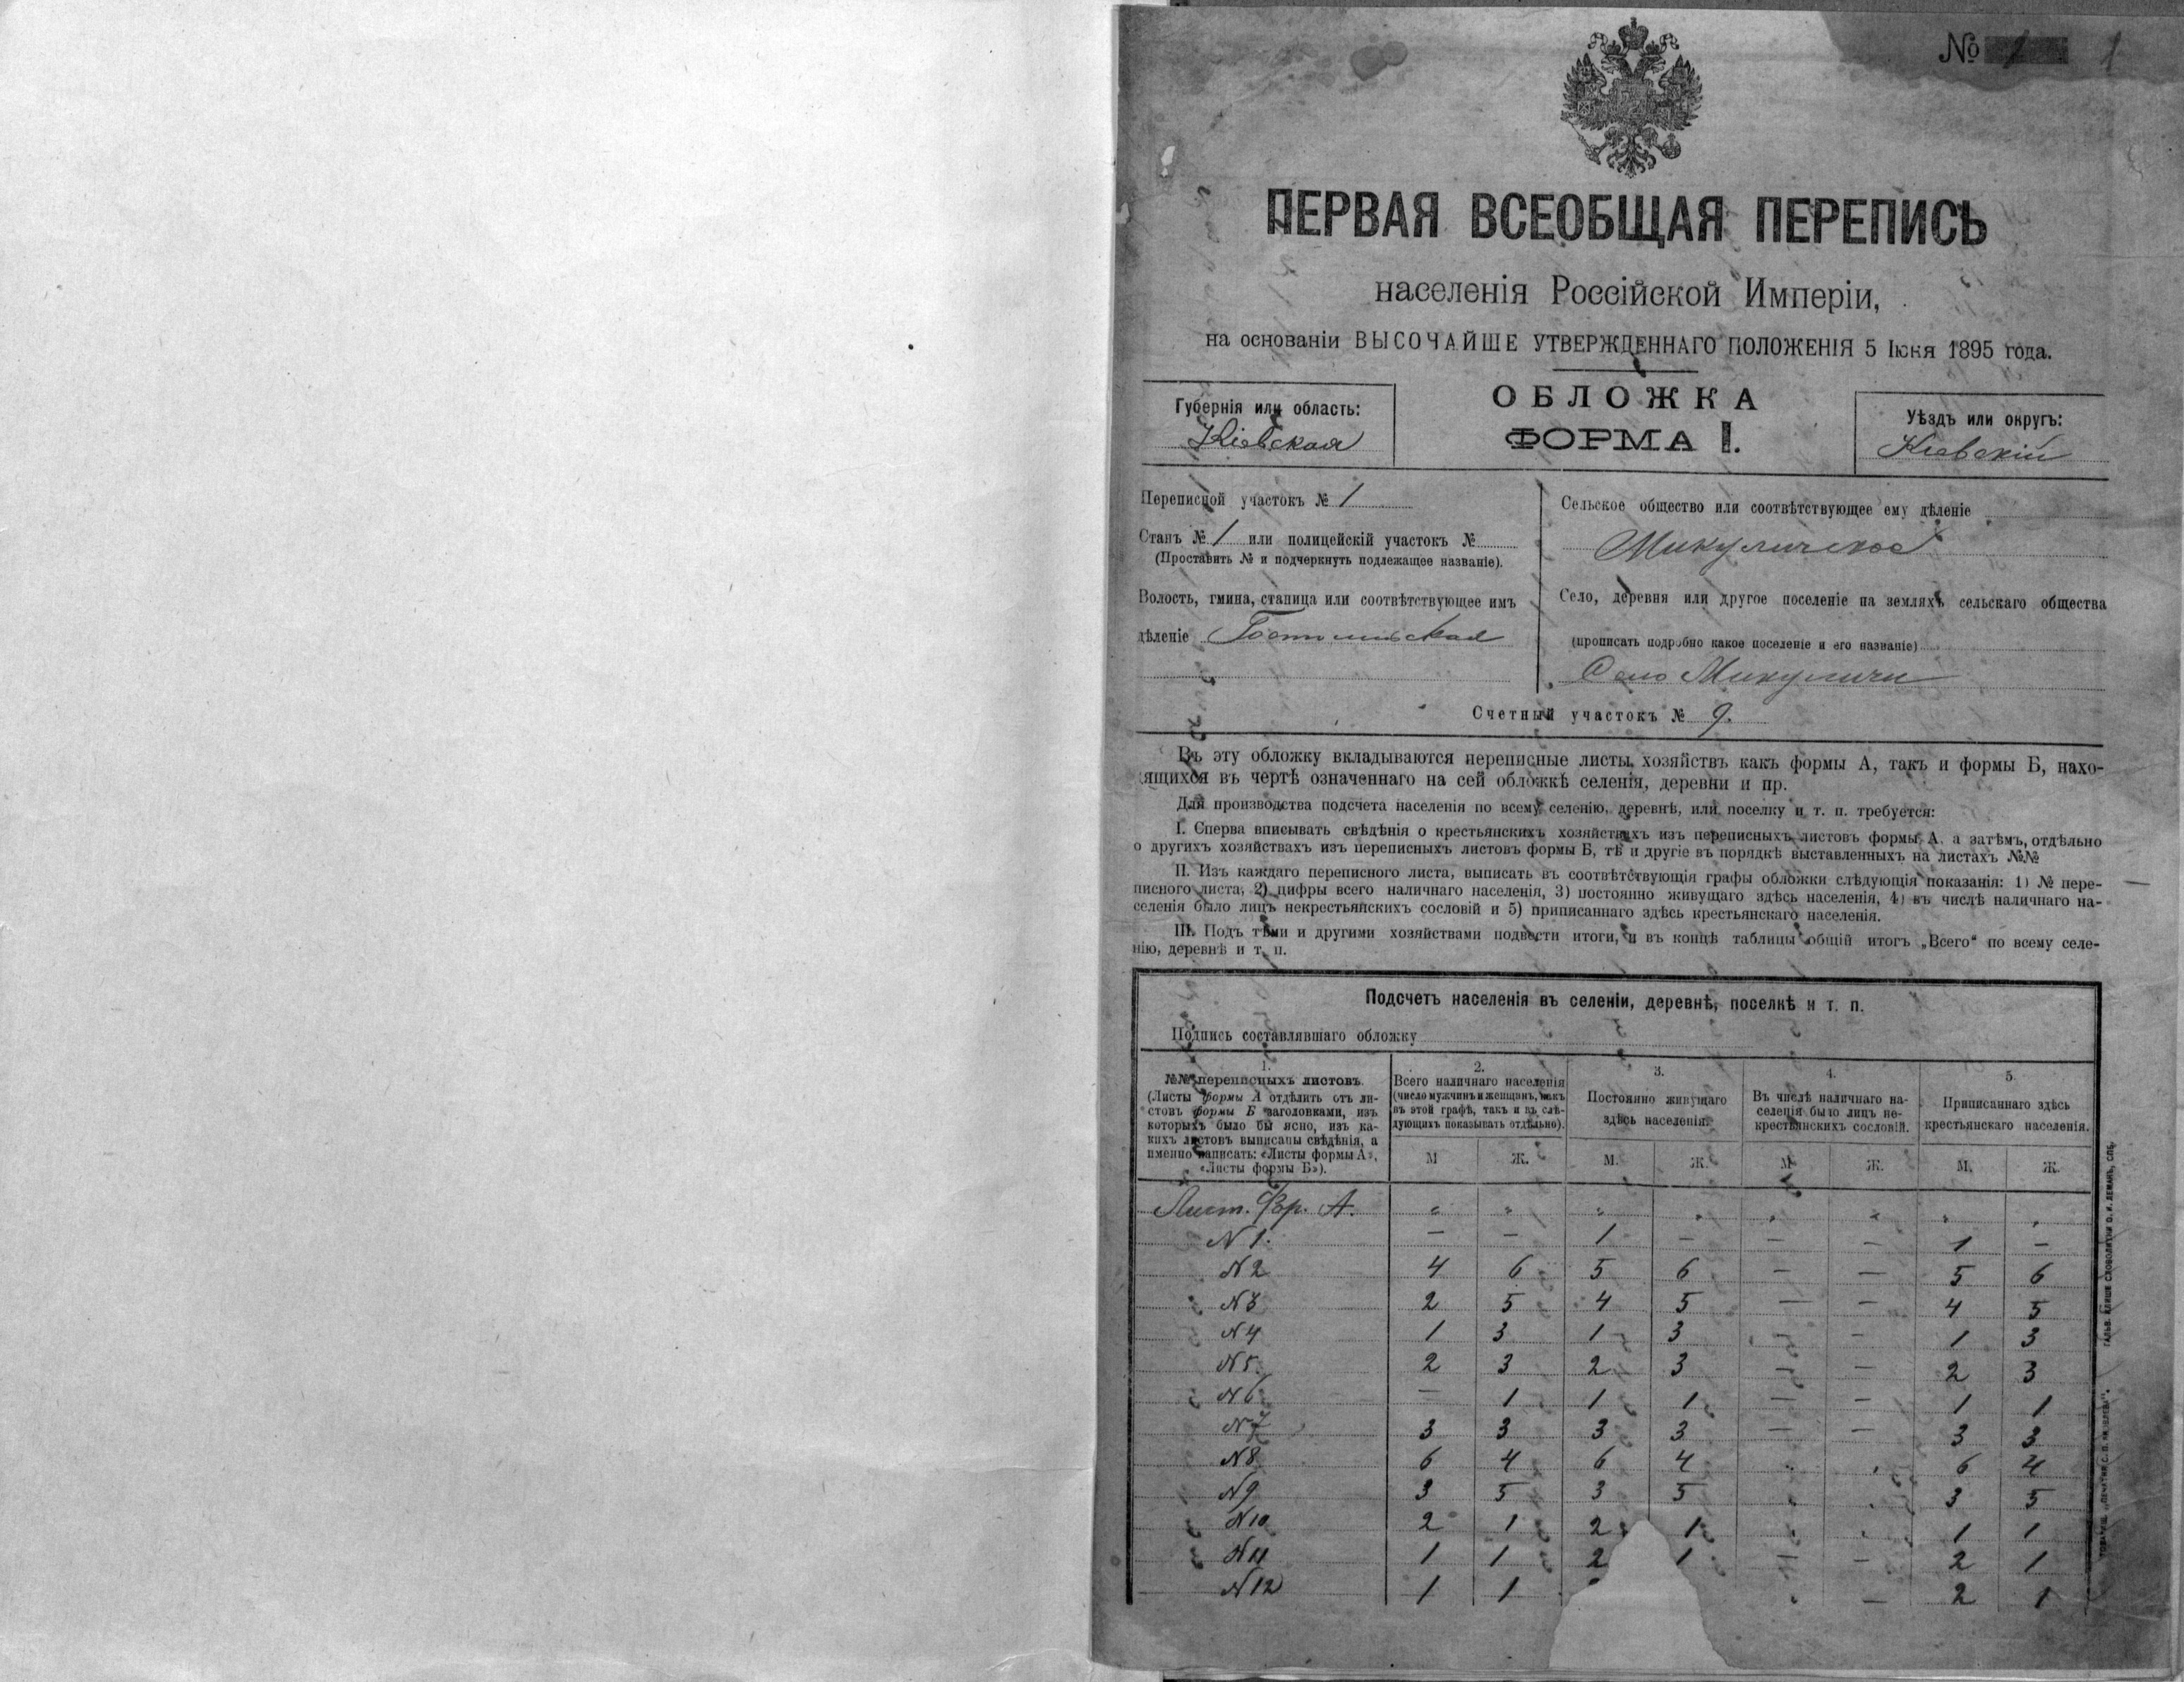 № 1 1
ПЕРВАЯ ВСЕОБЩАЯ ПЕРЕПИСЬ
населенія Россійской Имперіи,
на основаніи ВЫСОЧАЙШЕ УТВЕРЖДЕННАГО ПОЛОЖЕНІЯ 5 Іюня 1895 года.
Губернія или область:
Кіевская
ОБЛОЖКА
ФОРМА I.
Уѣздъ или округъ:
Кіевскій
Переписной участокъ № 1
Станъ № 1 или полицейскій участокъ №
(Проставить № и подчеркнуть подлежащее названіе).
Волость, гмина, станица или соотвѣтствующее имъ
дѣленіе Гостомльская
Сельское общество или соотвѣтствующее ему дѣленіе
Микуличское
Село, деревня или другое поселеніе на земляхъ сельскаго общества
(прописать подробно какое поселеніе и его названіе)
Село Микуличи
Счетный участокъ № 9.
Въ эту обложку вкладываются переписные листы хозяйствъ какъ формы А, такъ и формы Б, нахо-
дящихся въ чертѣ означеннаго на сей обложкѣ селенія, деревни и пр.
Для производства подсчета населенія по всему селенію, деревнѣ, или поселку и т. п. требуется:
I. Сперва вписывать свѣдѣнія о крестьянскихъ хозяйствахъ изъ переписныхъ листовъ формы А, а затѣмъ, отдѣльно
о другихъ хозяйствахъ изъ переписныхъ листовъ формы Б, тѣ и другіе въ порядкѣ выставленныхъ на листахъ №№
II. Изъ каждаго переписного листа, выписать въ соотвѣтствующія графы обложки слѣдующія показанія: 1) № пере-
писного листа, 2) цифры всего наличнаго населенія, 3) постоянно живущаго здѣсь населенія, 4) въ числѣ наличнаго на-
селенія было лицъ некрестьянскихъ сословій и 5) приписаннаго здѣсь крестьянскаго населенія.
III. Подъ тѣми и другими хозяйствами подвести итоги, и въ концѣ таблицы общій итогъ „Всего“ по всему селе-
нію, деревнѣ и т. п.
Подсчетъ населенія въ селеніи, деревнѣ, поселкѣ и т. п.
Подпись составлявшаго обложку
1.
№№ переписныхъ листовъ
(Листы формы А отдѣлить отъ ли-
стовъ формы Б заголовками, изъ
которыхъ было бы ясно, изъ ка-
кихъ листовъ выписаны свѣдѣнія, а
именно написать: «Листы формы А»,
«Листы формы Б»).
2.
Всего наличнаго населенія
(число мужчинъ и женщинъ, какъ
въ этой графѣ, такъ и въ слѣ-
дующихъ показывать отдѣльно).
3.
Постоянно живущаго
здѣсь населенія.
4.
Въ числѣ наличнаго на-
селенія было лицъ не-
крестьянскихъ сословій.
5.
Приписаннаго здѣсь
крестьянскаго населенія.
М Ж. М. Ж. М. Ж. М. Ж.
Лист. Фор. А. " " " " " " " "
N 1. — — 1 — — — 1 —
N 2 4 6 5 6 — — 5 6
N 3 2 5 4 5 — — 4 5
N 4 1 3 1 3 - - 1 3
N 5 2 3 2 3 — — 2 3
N 6 — 1 1 1 — — 1 1
N 7 3 3 3 3 — — 3 3
N 8 6 4 6 4 " " 6 4
N 9 3 5 3 5 " " 3 5
N 10 2 1 2 1 " " 1 1
N 11 1 1 2 1 — — 2 1
N 12 1 1 " — 2 1